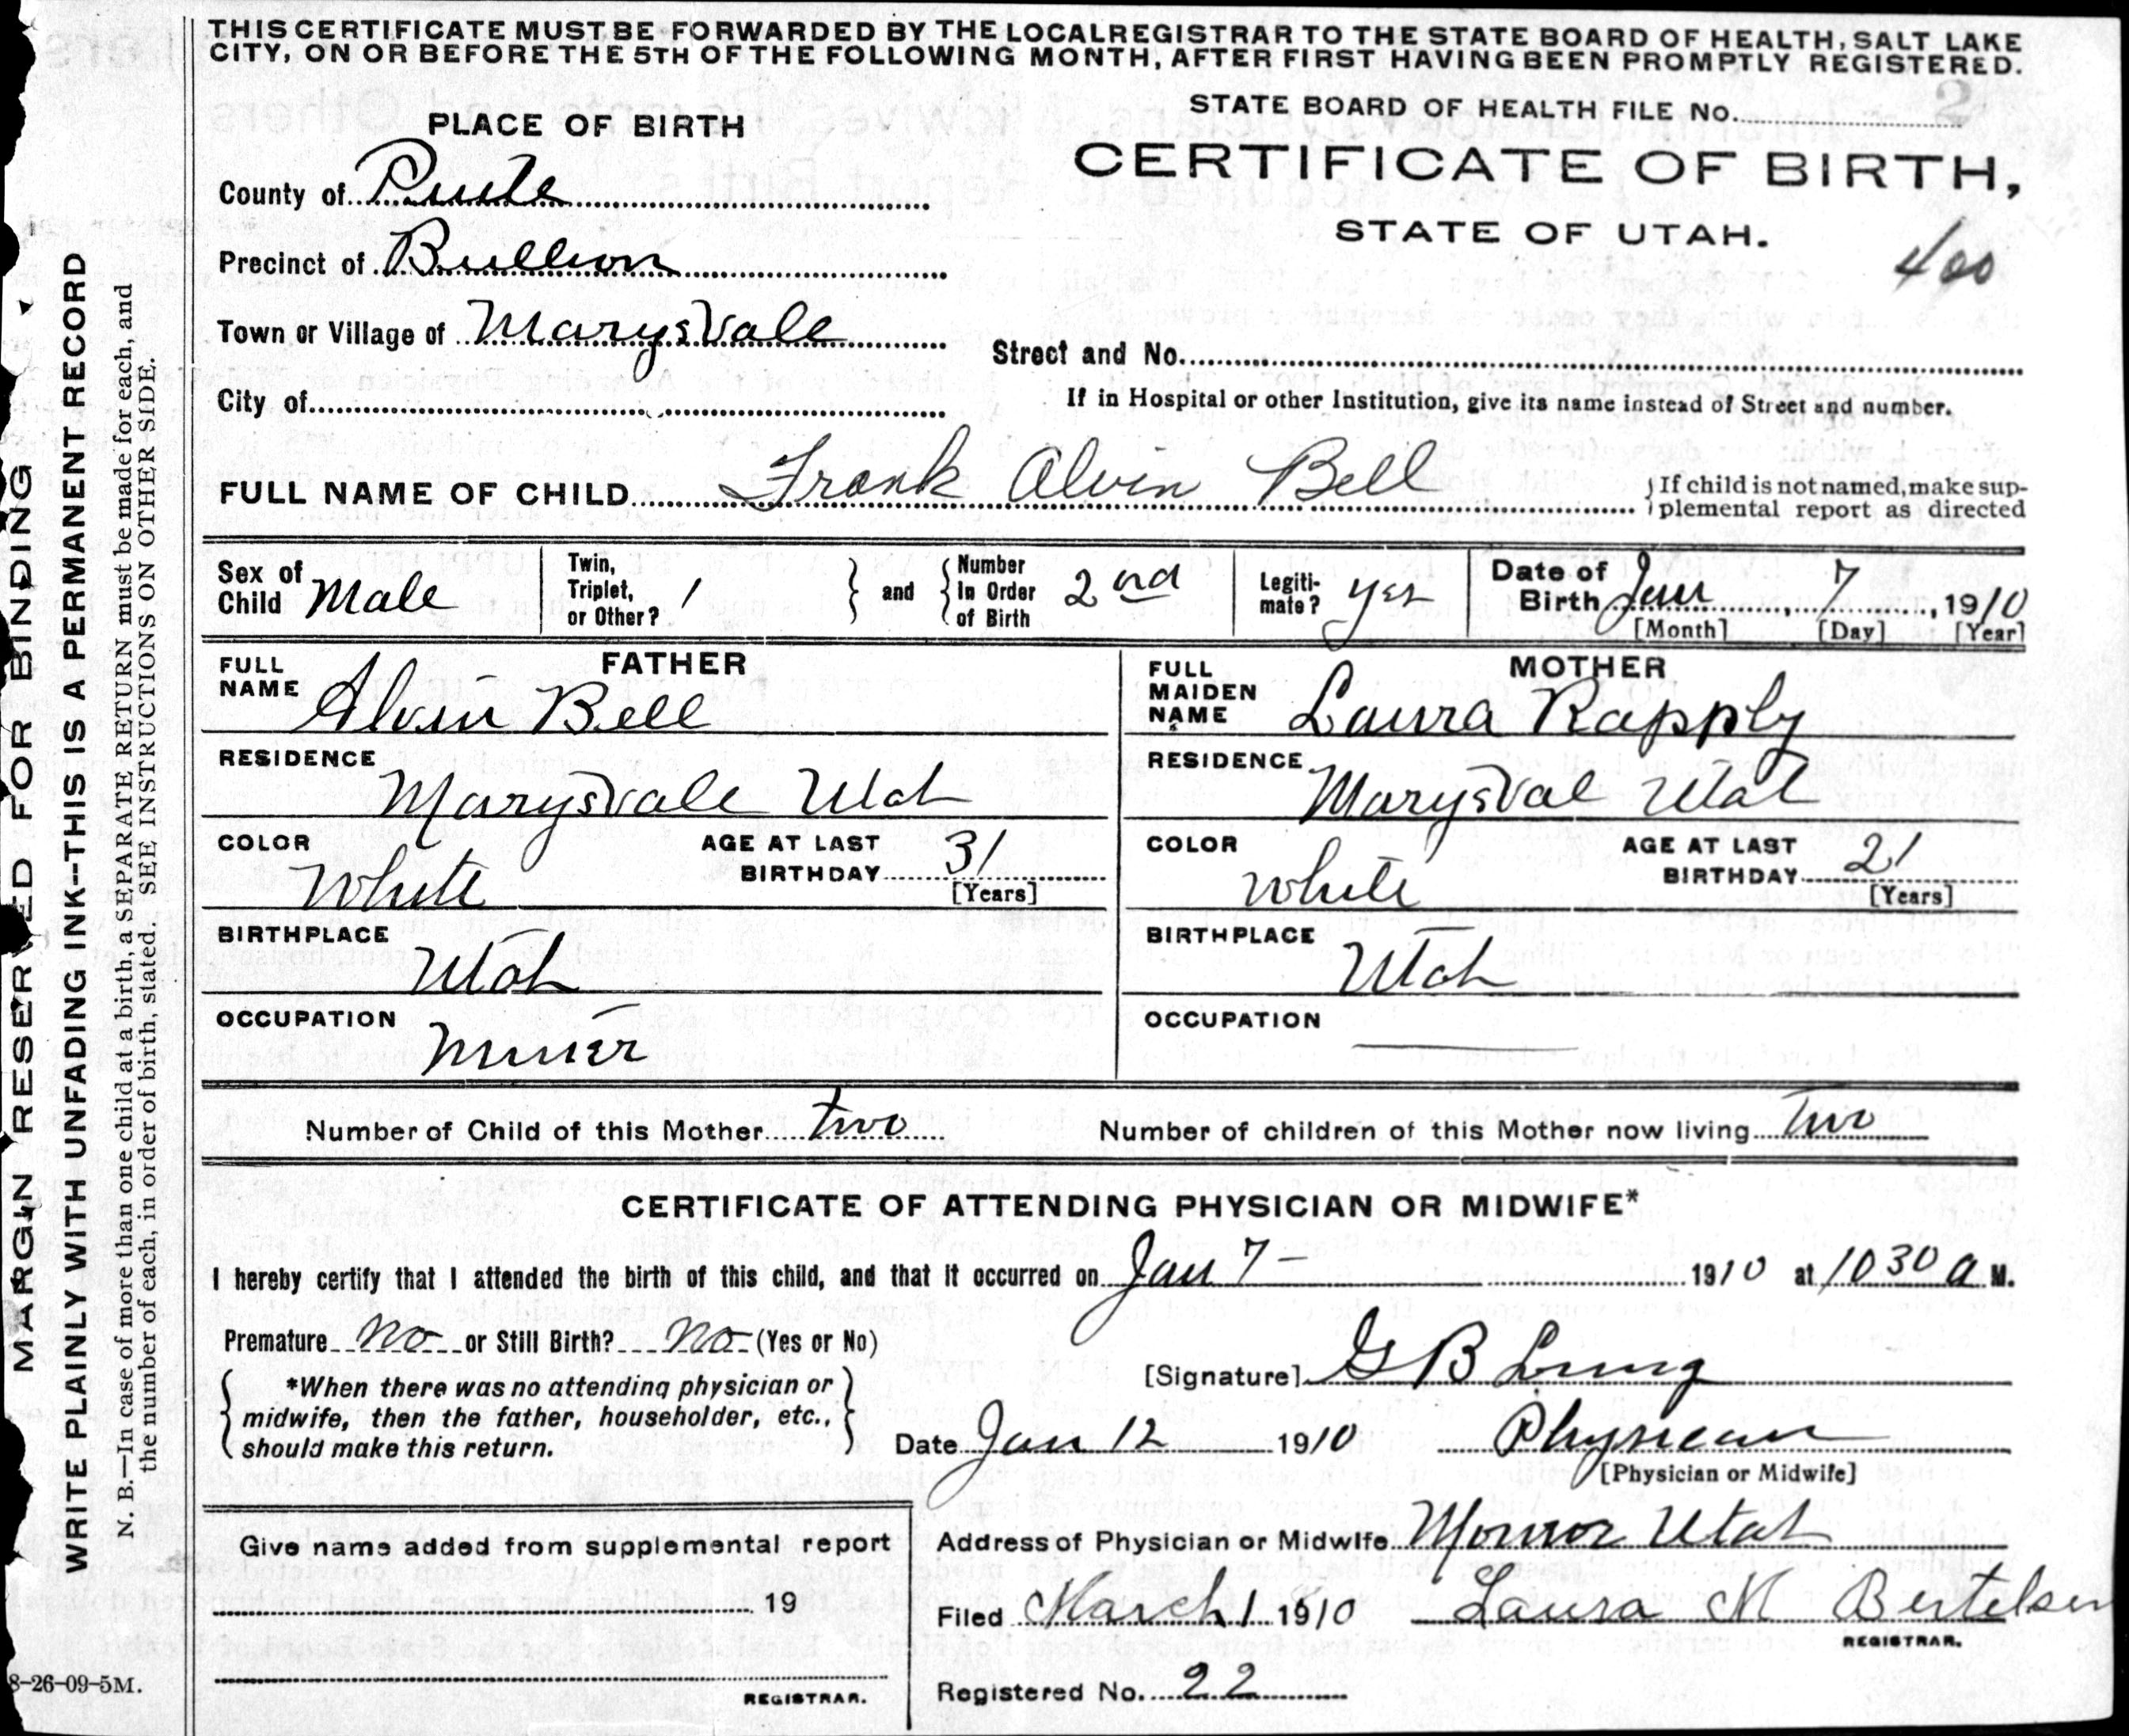 THIS CERTIFICATE MUST BE FORWARDED BY THE LOCAL REGISTRAR TO THE STATE BOARD OF HEALTH, SALT LAKE
CITY, ON OR BEFORE THE 5TH OF THE FOLLOWING MONTH, AFTER FIRST HAVING BEEN PROMPTLY REGISTERED.
STATE BOARD OF HEALTH FILE No. 2
PLACE OF BIRTH
CERTIFICATE OF BIRTH,
STATE OF UTAH.
400
County of Piute
Precinct of Bullion
Town or Village of MarysVale
Street and No.
City of
If in Hospital or other Institution, give its name instead of Street and number.
FULL NAME OF CHILD Frank Alvin Bell
If child is not named, make sup-
plemental report as directed
Sex of Child Male
Twin, Triplet, or Other? 1
and
Number In Order of Birth 2nd
Legiti-mate? yes
Date of Birth Jan 7, 1910
[Month] [Day] [Year]
FATHER
FULL NAME Alvin Bell
RESIDENCE Marysvale Utah
COLOR White
AGE AT LAST BIRTHDAY 31
[Years]
BIRTHPLACE Utah
OCCUPATION Miner
MOTHER
FULL MAIDEN NAME Laura Rapply
RESIDENCE MarysVal Utah
COLOR White
AGE AT LAST BIRTHDAY 21
[Years]
BIRTHPLACE Utah
OCCUPATION
Number of Child of this Mother two
Number of children of this Mother now living Two
CERTIFICATE OF ATTENDING PHYSICIAN OR MIDWIFE*
I hereby certify that I attended the birth of this child, and that it occurred on Jan 7 - 1910 at 10 30 a M.
Premature no or Still Birth? no (Yes or No)
*When there was no attending physician or
midwife, then the father, householder, etc.,
should make this return.
[Signature] G B Lung
Date Jan 12 1910
Physician
[Physician or Midwife]
Address of Physician or Midwife Monroe Utah
Filed March 1 1910
Laura M Bertelsen
REGISTRAR.
Registered No. 22
Give name added from supplemental report
19
REGISTRAR.
MARGIN RESERVED FOR BINDING
WRITE PLAINLY WITH UNFADING INK--THIS IS A PERMANENT RECORD
N. B.—In case of more than one child at a birth, a SEPARATE RETURN must be made for each, and
the number of each, in order of birth, stated. SEE INSTRUCTIONS ON OTHER SIDE.
8-26-09-5M.